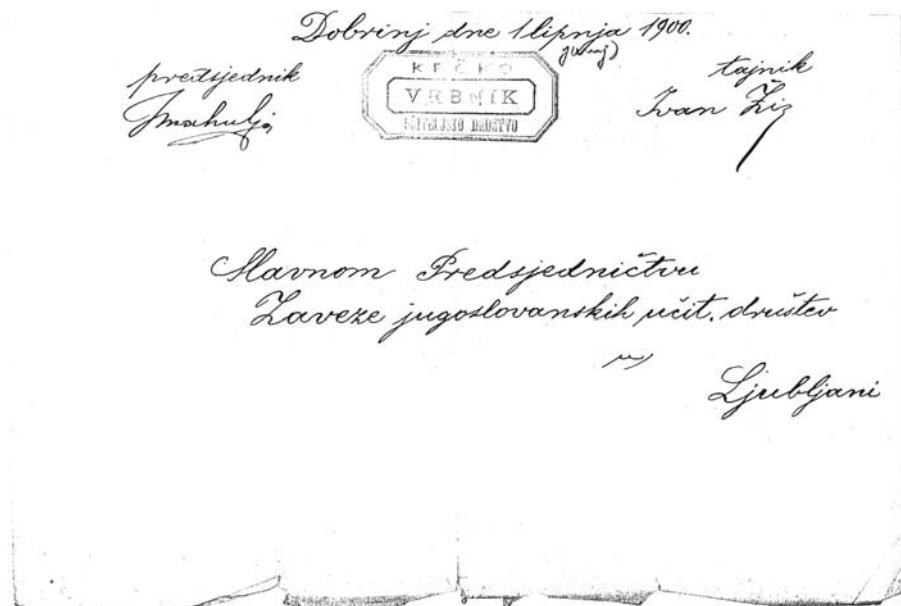 Dobrinj dne 1 lipnja 1900.
predsjednik
tajnik
KRČKO
VRBNIK
UČITELJSTO DRUŠTVO
Ivan Žic
Slavnom Predsjedničtvu
Zaveze jugoslovanskih učit. društev
u
Ljubljani